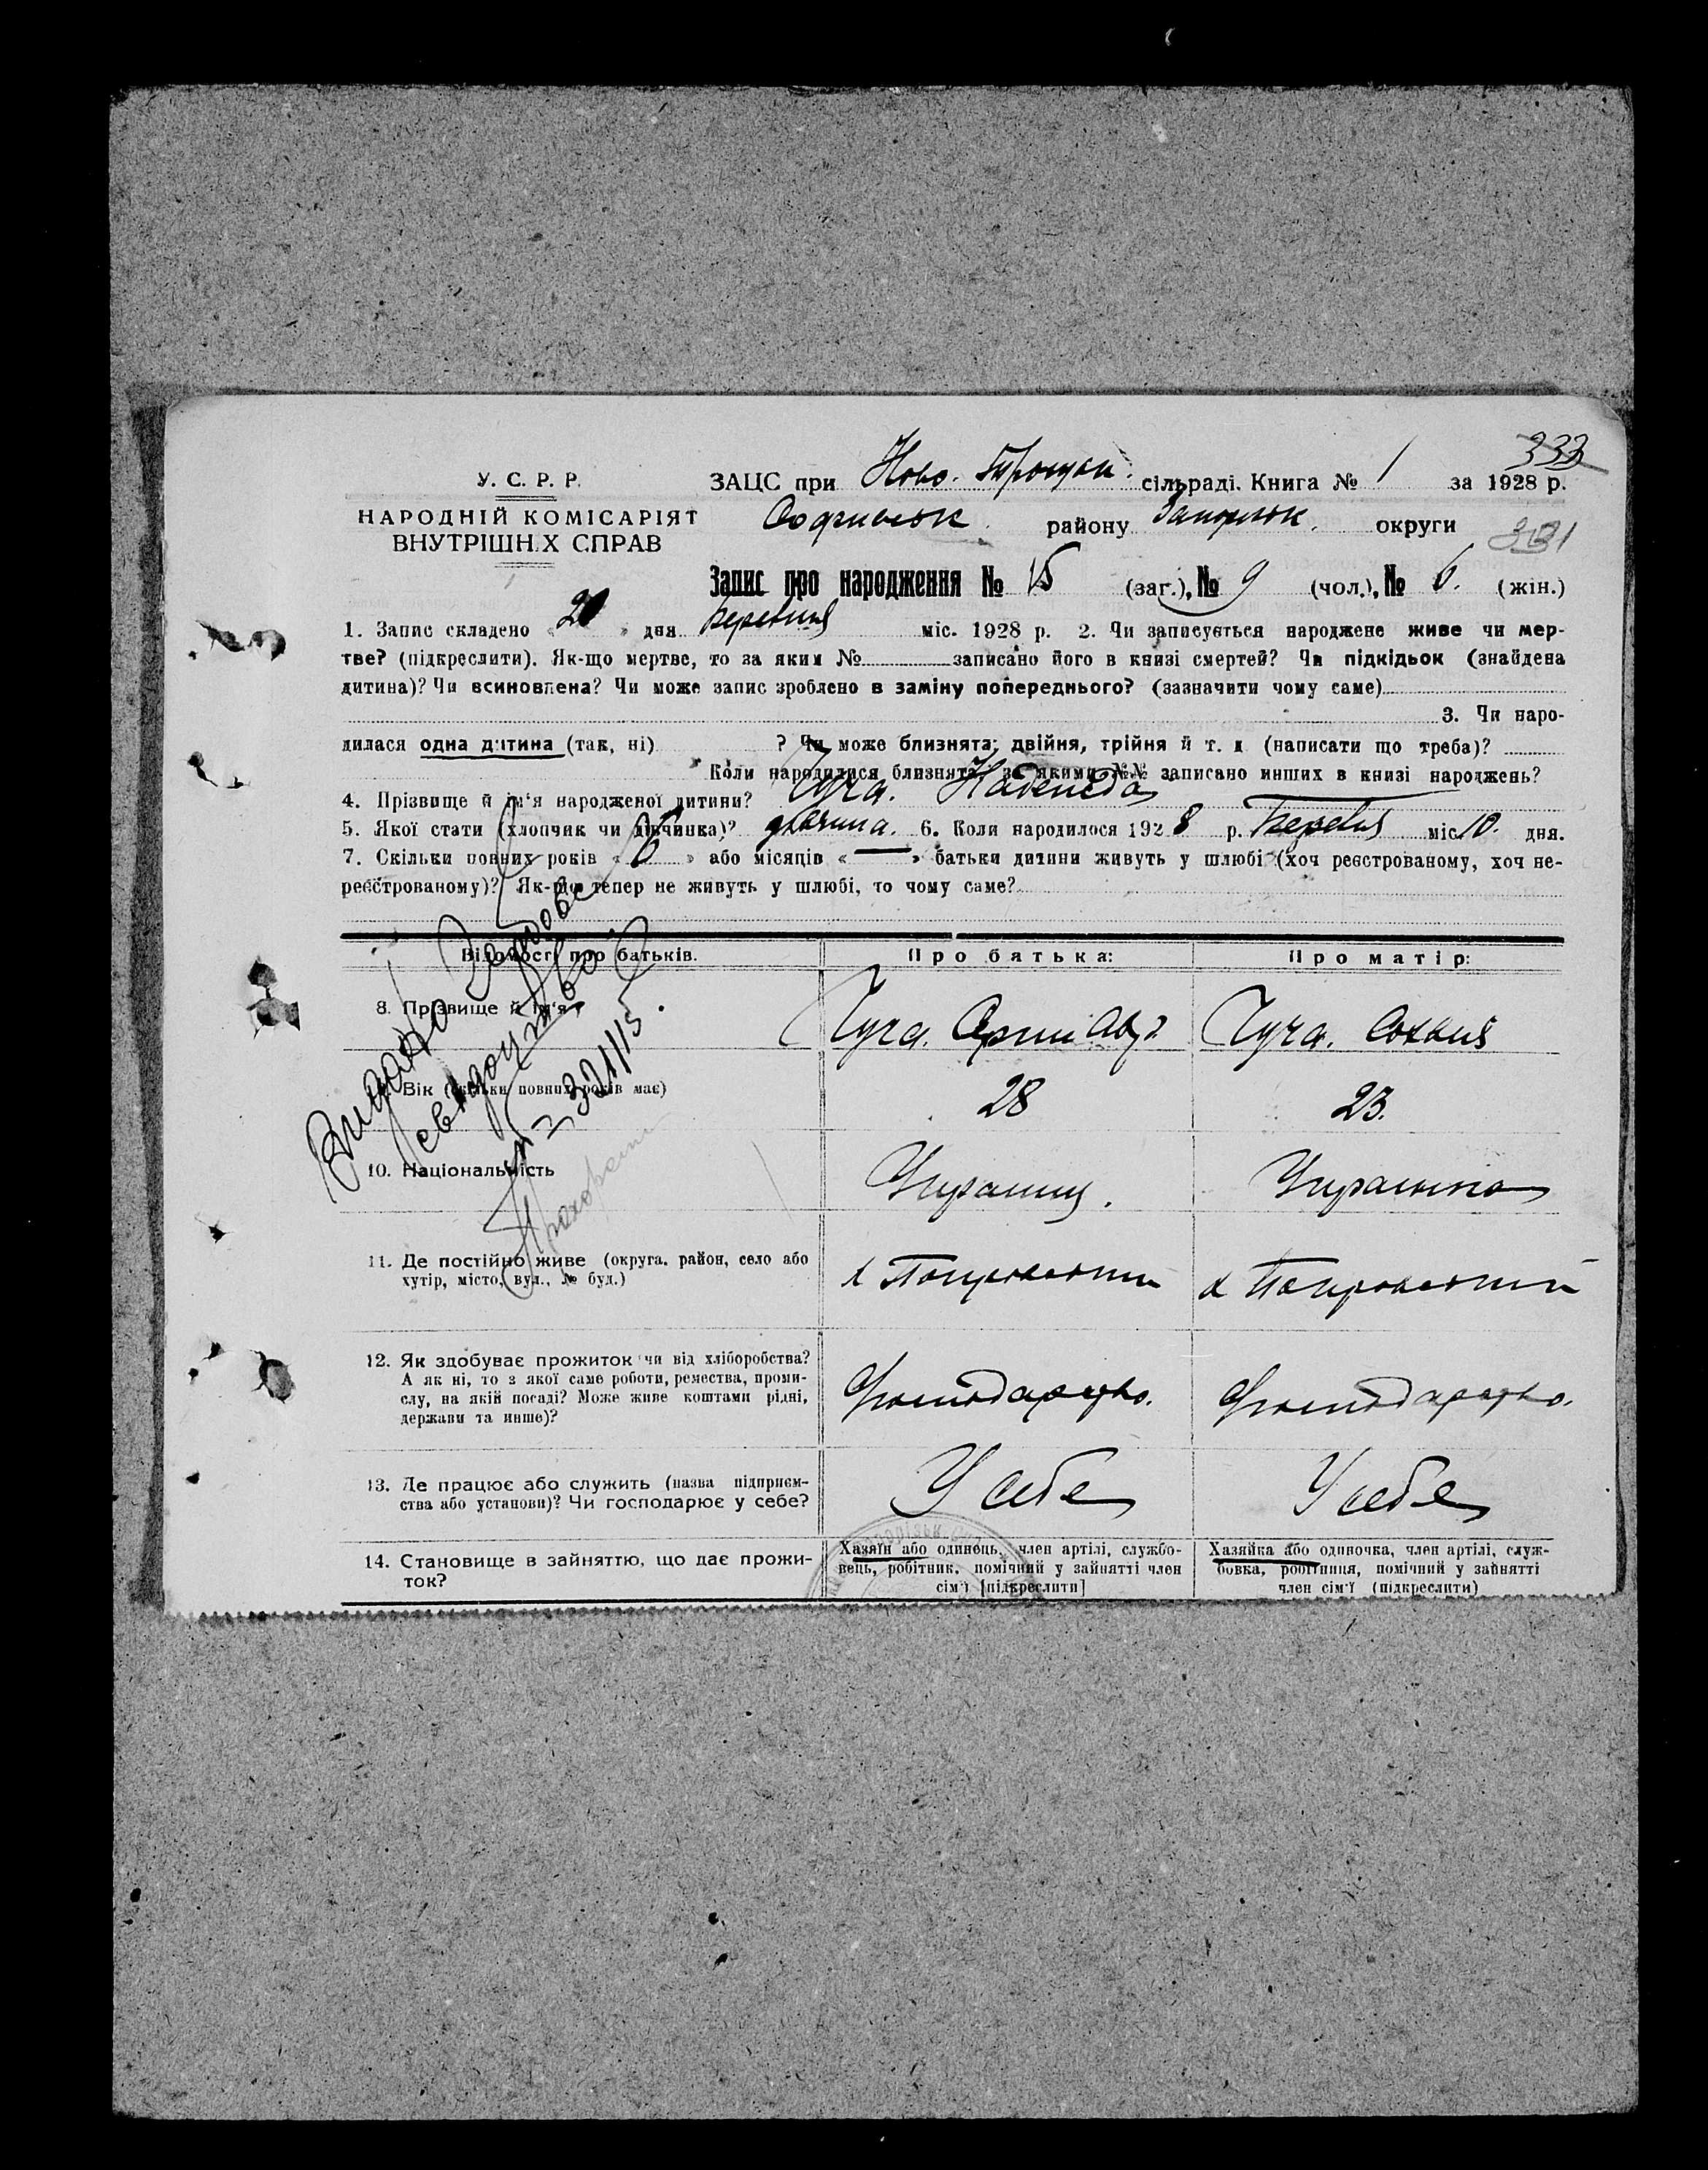 333
У. С. Р. Р. ЗАЦС при Ново. сільраді. Книга № 1 за 1928 р.
НАРОДНІЙ КОМІСАРІЯТ району Запорізьк. округи 331
ВНУТРІШНІХ СПРАВ
Запис про народження № 15 (заг.), № 9 (чол.), № 6. (жін.)
1. Запис складено « 20 » дня березня міс. 1928 р. 2. Чи записується народжене живе чи мер-
тве? (підкреслити). Як-що мертве, то за яким № записано його в книзі смертей? Чи підкідьок (знайдена
дитина)? Чи всиновлена? Чи може запис зроблено в заміну попереднього? (зазначити чому саме)
3. Чи наро-
дилася одна дитина (так, ні) ? Чи може близнята; двійня, трійня й т. д (написати що треба)?
Коли народилися близнята, за якими №№ записано инших в книзі народжень?
4. Прізвище й ім'я народженої дитини? Гуча. Надежда
5. Якої стати (хлопчик чи дівчинка)? дівчина. 6. Коли народилося 1928 р. березня міс 10. дня.
7. Скільки повних років « 6 » або місяців « — » батьки дитини живуть у шлюбі (хоч реєстрованому, хоч не-
реєстрованому)? Як-що тепер не живуть у шлюбі, то чому саме?
Відомості про батьків. Про батька: Про матір:
8. Прізвище й ім'я? Гуча. Гуча. Софья
9. Вік (скільки повних років має) 28 23.
10. Національність Украинц. Украинка
11. Де постійно живе (округа, район, село або х Покровский х Покровский
хутір, місто, вул., № буд.)
12. Як здобуває прожиток чи від хліборобства?
А як ні, то з якої саме роботи, ремества, проми-
слу, на якій посаді? Може живе коштами рідні, Господарство. Господарство.
держави та инше)?
13. Де працює або служить (назва підприєм- У себе У себе
ства або установи)? Чи господарює у себе?
14. Становище в зайняттю, що дає прожи-
ток?
Хазяїн або одинець, член артілі, службо-
вець, робітник, помічний у зайнятті член
сім'ї [підкреслити]
Хазяйка або одиночка, член артілі, служ-
бовка, робітниця, помічний у зайнятті
член сім'ї (підкреслити)
Видано
свидоцтво
№ 321/15.